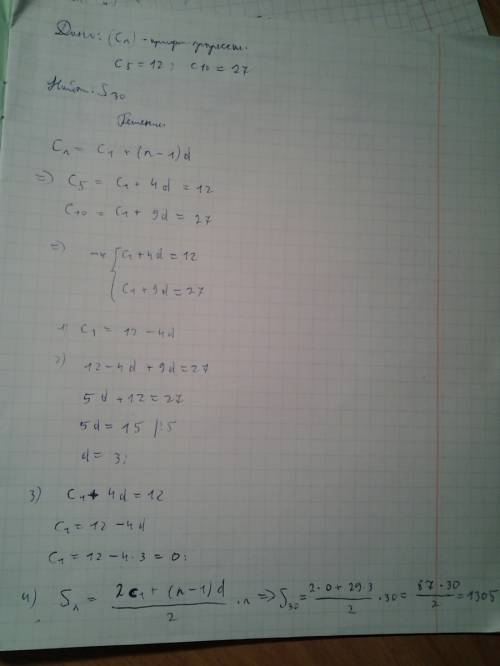 Дано: (Cn) - арифм. прогрессия.
C5 = 12; C10 = 27
Найти: S30
Решение
Cn = C1 + (n-1)d
=> C5 = C1 + 4d = 12
C10 = C1 + 9d = 27
=> C1 + 4d = 12
C1 + 9d = 27
1) C1 = 12 - 4d
2) 12 - 4d + 9d = 27
5d + 12 = 27
5d = 15 |:5
d = 3;
3) C1 + 4d = 12
C1 = 12 - 4d
C1 = 12 - 4·3 = 0;
4) Sn = (2C1 + (n-1)d)/2 · n => S30 = (2·0 + 29·3)/2 · 30 = (87·30)/2 = 1305